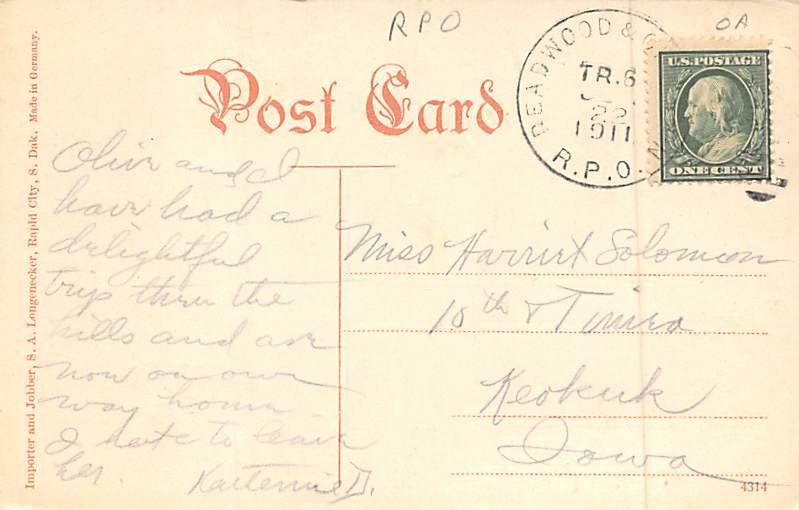 RPO
OA
Post Card
DEADWOOD & O
TR.6
22
1911
R.P.O.
U.S. POSTAGE
ONE CENT
Importer and Jobber, S. A. Longenecker, Rapid City, S. Dak. Made in Germany.
Olive and I
have had a
delightful
trip thru the
hills and are
now on our
way home.
I hate to leave
her.
Katternie D.
Miss Harriet Solomon
10th & Timea
Keokuk
Iowa
4314